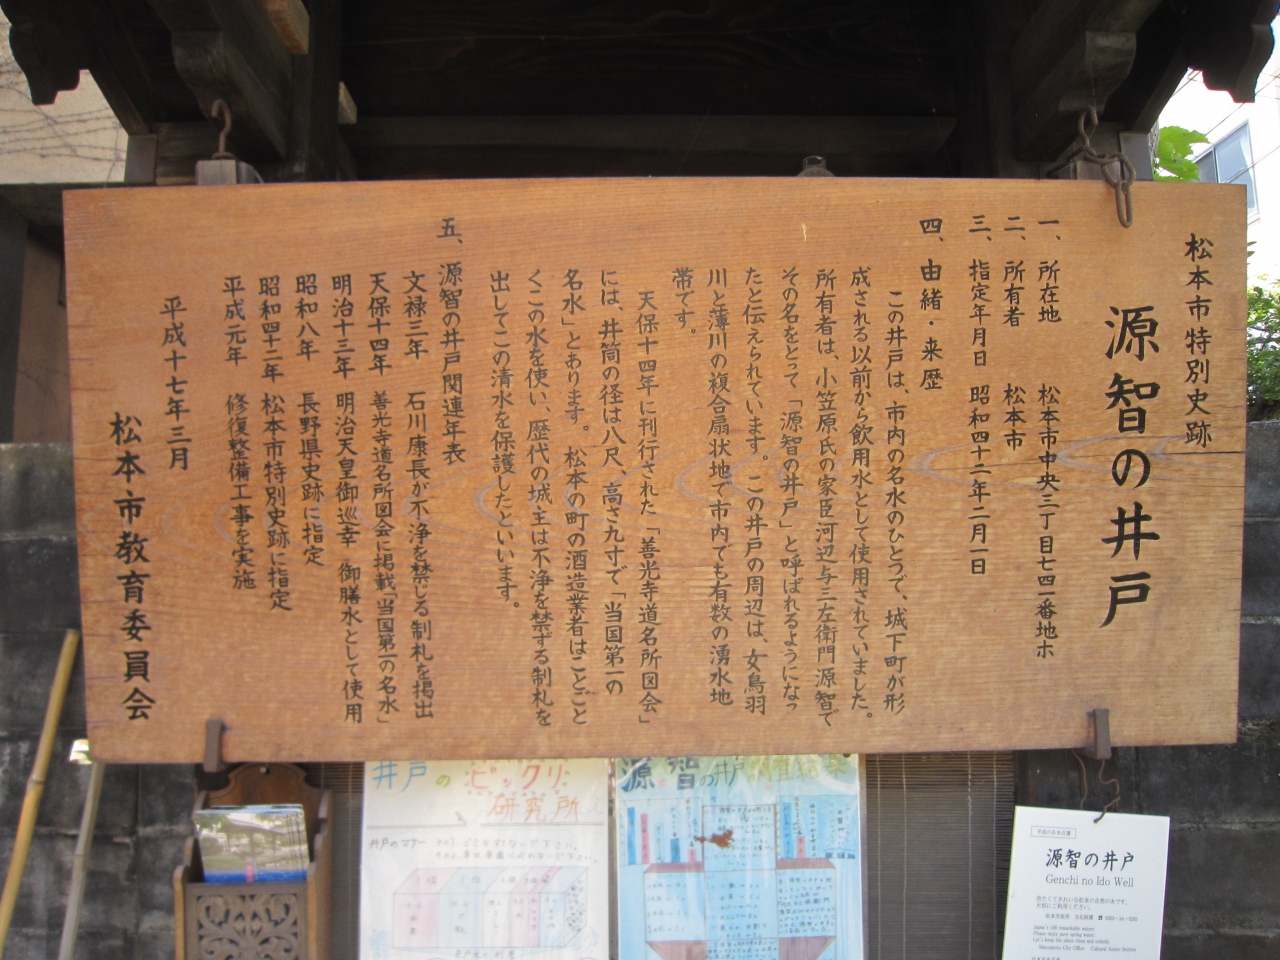 松本市特別史跡
源智の井戸
一、所在地 松本市中央三丁目七四一番地ホ
二、所有者 松本市
三、指定年月日 昭和四十二年二月一日
四、由緒・来歴
この井戸は、市内の名水のひとつで、城下町が形
成される以前から飲用水として使用されていました。
所有者は、小笠原氏の家臣河辺与三左衛門源智で
その名をとって「源智の井戸」と呼ばれるようになっ
たと伝えられています。この井戸の周辺は、女鳥羽
川と薄川の複合扇状地で市内でも有数の湧水地
帯です。
天保十四年に刊行された「善光寺道名所図会」
には、井筒の径は八尺、高さ九寸で「当国第一の
名水」とあります。松本の町の酒造業者はことごと
くこの水を使い、歴代の城主は不浄を禁ずる制札を
出してこの清水を保護したといいます。
五、源智の井戸関連年表
文禄三年 石川康長が不浄を禁じる制札を掲出
天保十四年 善光寺道名所図会に掲載「当国第一の名水」
明治十三年 明治天皇御巡幸 御膳水として使用
昭和八年 長野県史跡に指定
昭和四十二年 松本市特別史跡に指定
平成元年 修復整備工事を実施
平成十七年三月
松本市教育委員会
井戸のビックリ
研究所
井戸のマナー
源智の井戸
源智の井戸
Genchi no Ido Well
Japan's 100 remarkable waters
Please enjoy pure spring water.
Let's keep the place clean and orderly.
Matsumoto City Office